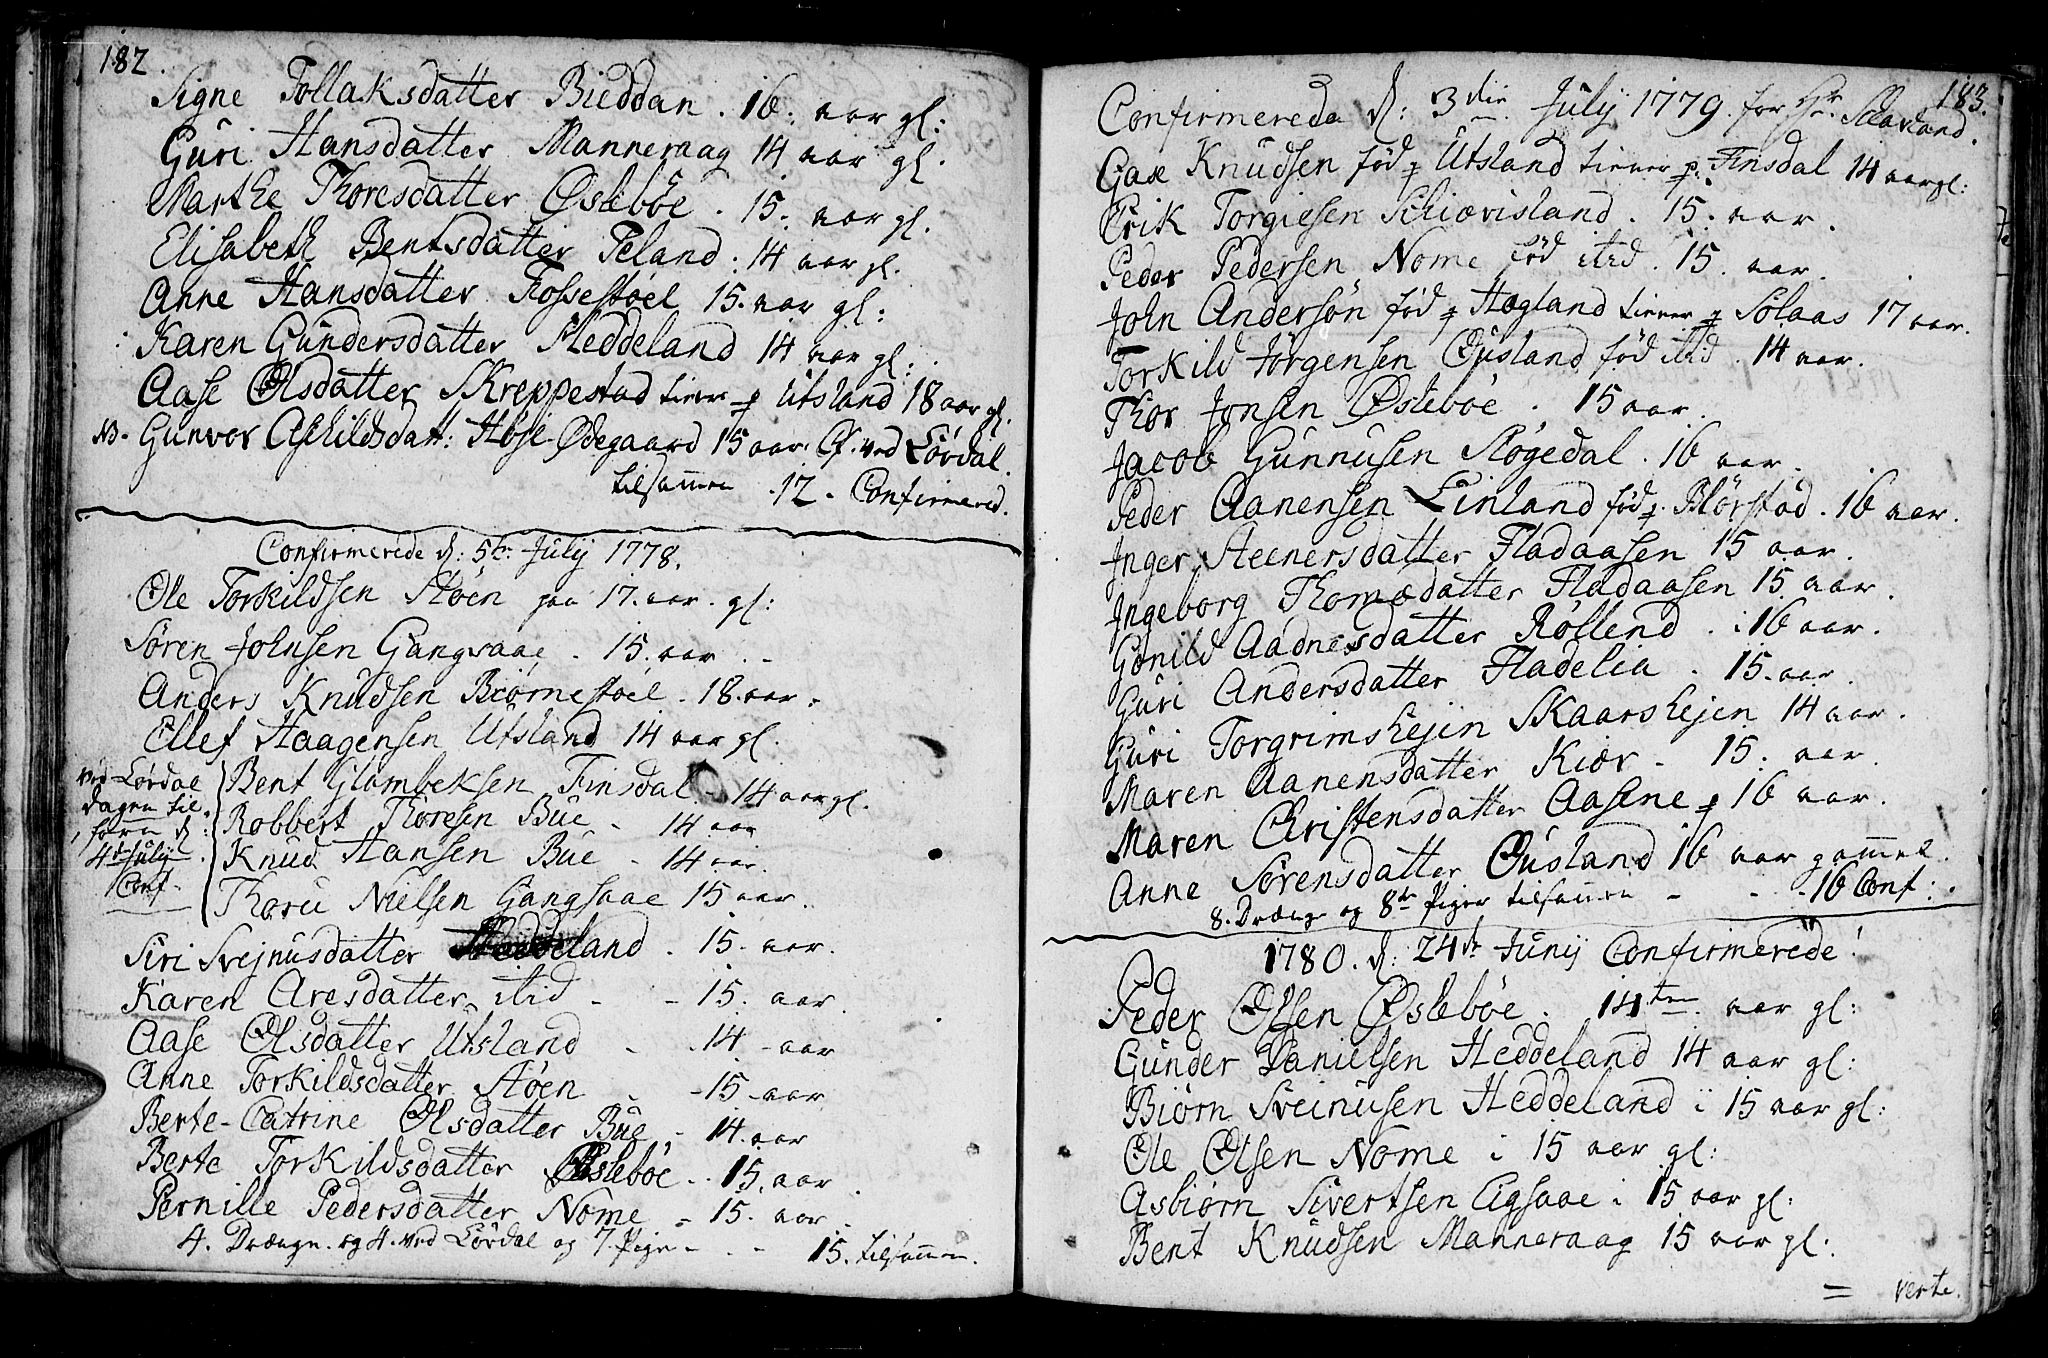 182.
Signe Tollaksdatter Bieddan. 16: aar gl:
Guri Hansdatter Manneraag 14 aar gl.
Marthe Thoresdatter Øslebøe. 15. aar gl.
Elisabeth Bentsdatter Teland. 14 aar gl.
Anne Hansdatter Fossestøel 15. aar gl:
Karen Gundersdatter Heddeland 14 aar gl:
Aase Olsdatter Skreppestad tiener p Utsland 18 aar gl.
NB. Gunvor Askildsdatt: Høje-Ødegaard 15 aar. Cf. ved Lørdal.
tilsamen 12. Confirmered.
Confirmerede d: 5te July 1778.
Ole Torkildsen Støen paa 17. aar. gl:
Søren Johnsen Gangsaae. 15. aar.
Anders Knudsen Biørnestøel. 18. aar.
Ellef Haagensen Utsland 14 aar gl.
ved Lørdal
dagen til
forn d:
4de July
Conf.
Bent Glambeksen Finsdal - 14 aar gl.
Robbert Thoresen Bue - 14 aar
Knud Hansen Bue - 14 aar.
Thore Nielsen Gangsaae 15 aar.
Siri Svejnusdatter Heddeland. 15. aar.
Karen Aresdatter ibid - - 15. aar.
Aase Olsdatter Utsland - 14 - aar
Anne Torkildsdatter Støen - 15 - aar
Berte-Catrine Olsdatter Bue - 14. aar
Berte Torkildsdatter Øslebøe - 15. aar.
Pernille Pedersdatter Nome - 15. aar.
4. Drænge. og 4. ved Lørdal og 7 Piger - - 15. tilsamen.
183.
Confirmerede d: 3die July 1779. for Hr.
Aase Knudsen fød p Utsland tiener p. Finsdal 14 aar gl:
Erik Torgiesen Schiævisland. 15. aar.
Peder Pedersen Nome fød ibid. 15. aar.
John Andersøn fød p Hægland tiener p Solaas 17 aar.
Torkild Jørgensen Øusland fød ibid. 14 aar.
Thor Jonsen Øslebøe. 15 aar.
Jacob Gunnusen Støgedal. 16 aar.
Peder Aanensen Linland fød p. Blørstad. 16 aar.
Inger Steenersdatter Fladaasen 15 aar.
Ingeborg Thomædatter Fladaasen 15. aar.
Gonild Aadnesdatter Røllend. 16 aar.
Guri Andersdatter Fladelia. 15. aar.
Guri Torgrimshejin Skaarshejen 14 aar.
Maren Aanensdatter Kiær - 15. aar.
Maren Christensdatter Aasene p 16 aar.
Anne Sørensdatter Øusland 16 aar gammel.
8. Drænge og 8te Piger tilsamen - - - 16 Conf:
1780. d: 24de Junij Confirmerede!
Peder Olsen Øslebøe. 14ten aar gl:
Gunder Danielsen Heddeland 14 aar gl:
Biørn Sveinusen Heddeland i 15 aar gl:
Ole Olsen Nome i 15 aar gl:
Asbiørn Sivertsen Eigsaae i 15 aar gl:
Bent Knudsen Manneraag 15 aar gl:
= verte.